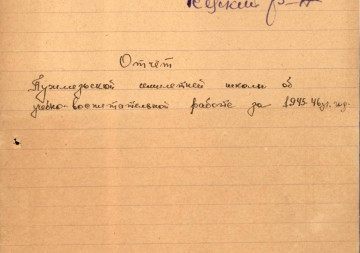 р-н
Отчет
Пужмезьской семилетней школы об
учебно-воспитательной работе за 1945-46 уч. год.